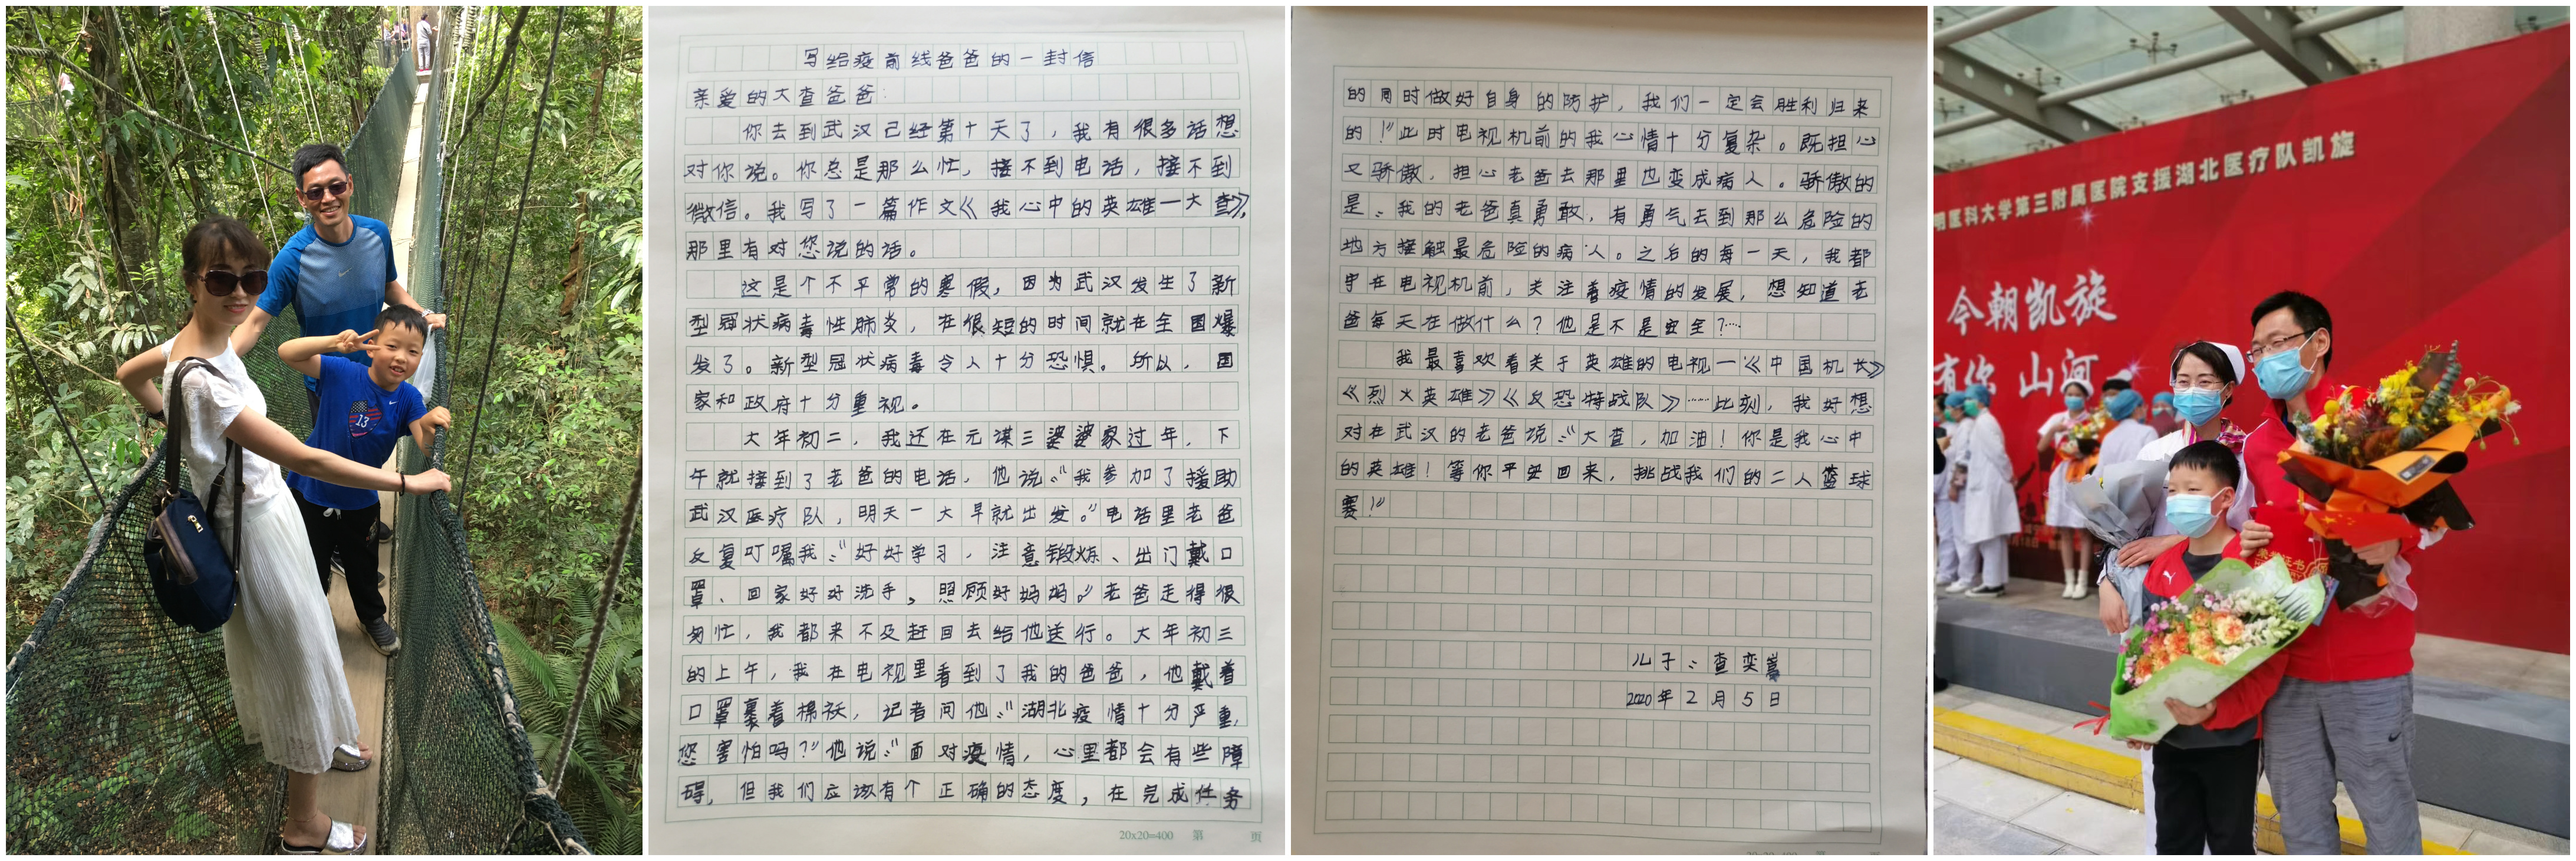 13
写给疫前线爸爸的一封信
亲爱的大查爸爸:
你去到武汉已经第十天了，我有很多话想
对你说。你总是那么忙，接不到电话，接不到
微信。我写了一篇作文《我心中的英雄一大查》，
那里有对您说的话。
这是个不平常的寒假，因为武汉发生了新
型冠状病毒性肺炎，在很短的时间就在全国爆
发了。新型冠状病毒令人十分恐惧。所以，国
家和政府十分重视。
大年初二，我还在元谋三婆婆家过年，下
午就接到了老爸的电话，他说:“我参加了援助
武汉医疗队，明天一大早就出发。”电话里老爸
反复叮嘱我:“好好学习，注意锻炼、出门戴口
罩、回家好好洗手，照顾好妈妈。”老爸走得很
匆忙，我都来不及赶回去给他送行。大年初三
的上午，我在电视里看到了我的爸爸，他戴着
口罩裹着棉袄，记者问他:“湖北疫情十分严重，
您害怕吗?”他说:“面对疫情，心里都会有些障
碍，但我们应该有个正确的态度，在完成任务
20x20=400 第 页
的同时做好自身的防护，我们一定会胜利归来
的!”此时电视机前的我心情十分复杂。既担心
又骄傲，担心老爸去那里也变成病人。骄傲的
是:我的老爸真勇敢，有勇气去到那么危险的
地方接触最危险的病人。之后的每一天，我都
守在电视机前，关注着疫情的发展，想知道老
爸每天在做什么?他是不是安全?……
我最喜欢看关于英雄的电视一《中国机长》
《烈火英雄》《反恐特战队》……此刻，我好想
对在武汉的老爸说:“大查，加油!你是我心中
的英雄!等你平安回来，挑战我们的二人篮球
赛!”
儿子:查奕嵩
2020年2月5日
明医科大学第三附属医院支援湖北医疗队凯旋
今朝凯旋
有你 山河